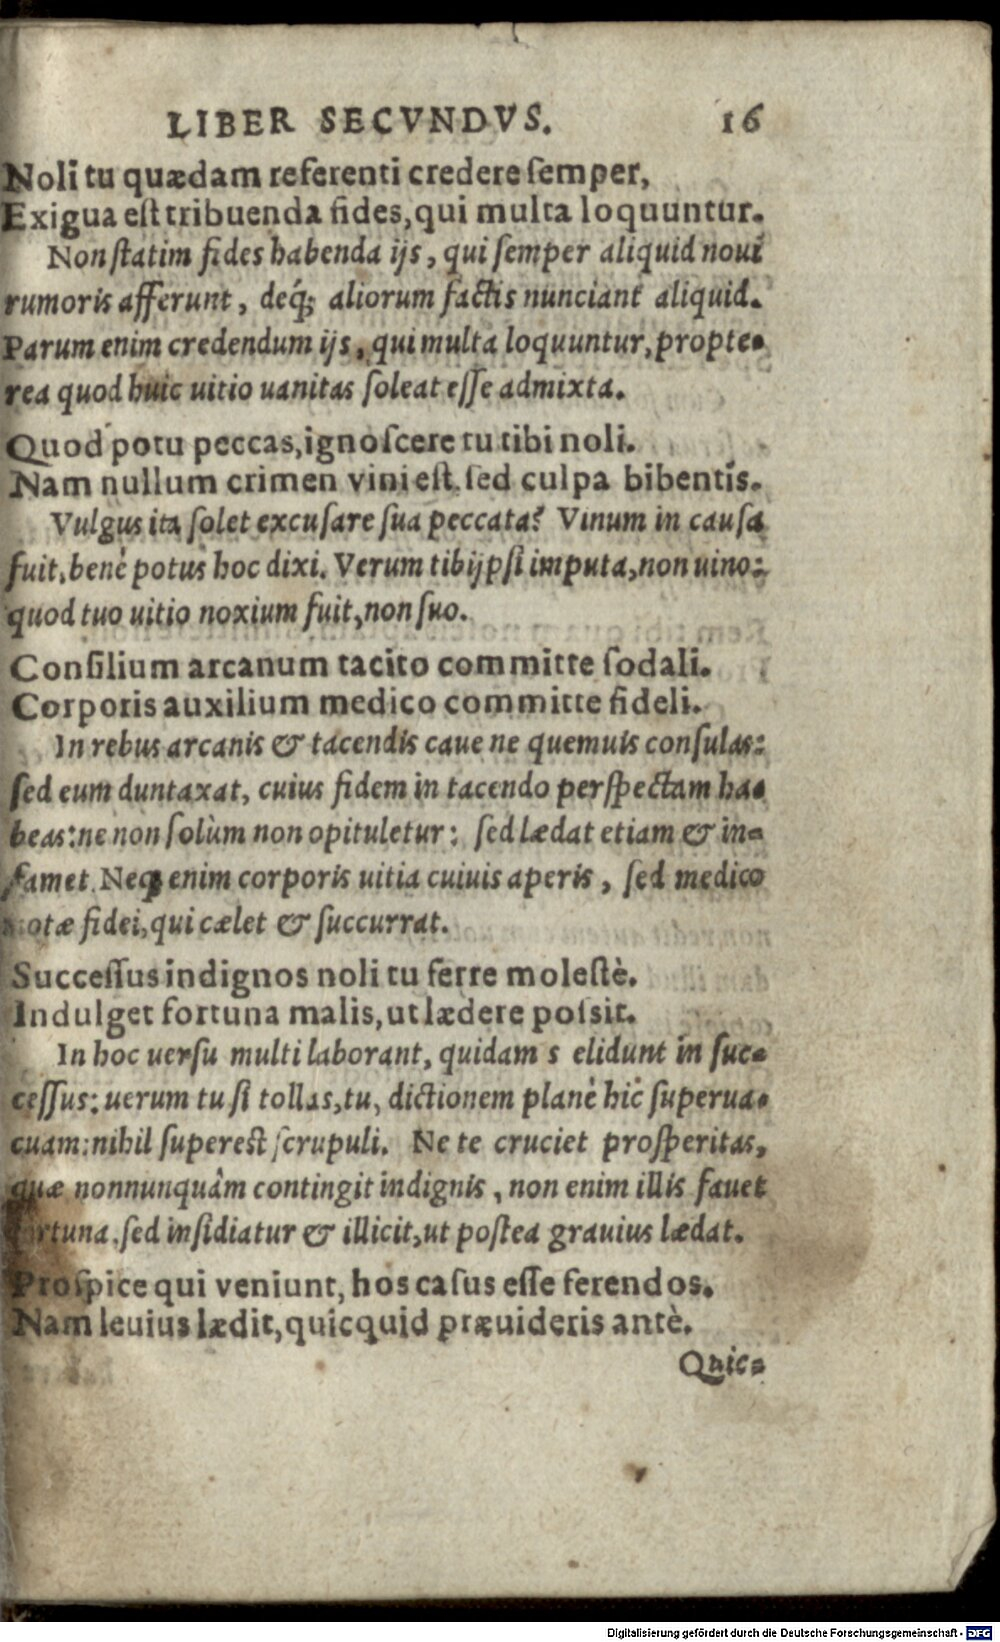 LIBER SECVNDVS. 16
Noli tu quædam referenti credere ſemper,
Exigua eſt tribuenda fides, qui multa loquuntur.
Non ſtatim fides habenda ijs, qui ſemper aliquid noui
rumoris afferunt, deq́; aliorum factis nunciant aliquid.
Parum enim credendum ijs, qui multa loquuntur, propte-
rea quod huic uitio uanitas ſoleat eſſe admixta.
Quod potu peccas, ignoſcere tu tibi noli.
Nam nullum crimen vini eſt, ſed culpa bibentis.
Vulgus ita ſolet excuſare ſua peccata? Vinum in cauſa
fuit, benè potus hoc dixi. Verum tibijpſi imputa, non uino:
quod tuo uitio noxium fuit, non ſuo.
Conſilium arcanum tacito committe ſodali.
Corporis auxilium medico committe fideli.
In rebus arcanis & tacendis caue ne quemuis conſulas:
ſed eum duntaxat, cuius fidem in tacendo perſpectam ha-
beas: ne non ſolùm non opituletur: ſed lædat etiam & in-
famet. Neq; enim corporis uitia cuiuis aperis, ſed medico
notæ fidei, qui cælet & ſuccurrat.
Succeſſus indignos noli tu ferre moleſtè.
Indulget fortuna malis, ut lædere poſsit.
In hoc uerſu multi laborant, quidam s elidunt in ſuc-
ceſſus: uerum tu ſi tollas, tu, dictionem planè hîc ſuperua-
cuam: nihil ſupereſt ſcrupuli. Ne te cruciet proſperitas,
quæ nonnunquàm contingit indignis, non enim illis fauet
fortuna, ſed inſidiatur & illicit, ut poſtea grauius lædat.
Proſpice qui veniunt, hos caſus eſſe ferendos.
Nam leuius lædit, quicquid præuideris antè.
Quic-
Digitalisierung gefördert durch die Deutsche Forschungsgemeinschaft - DFG